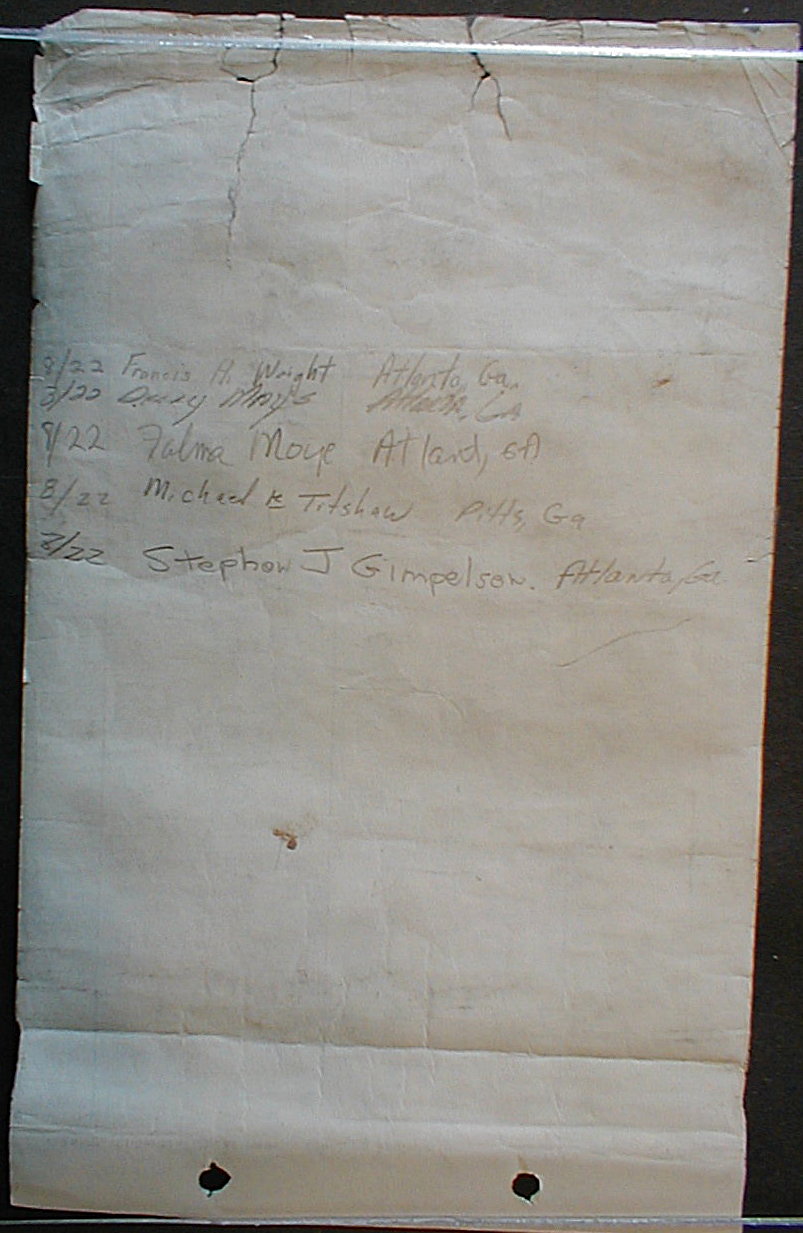 8/22 Francis H. Wright Atlanta, Ga.
8/22 Mays Atlanta, GA
8/22 Falma Moye Atland, GA
8/22 Michael E Titshaw Pitts, Ga
8/22 Stephen J Gimpelson. Atlanta, Ga